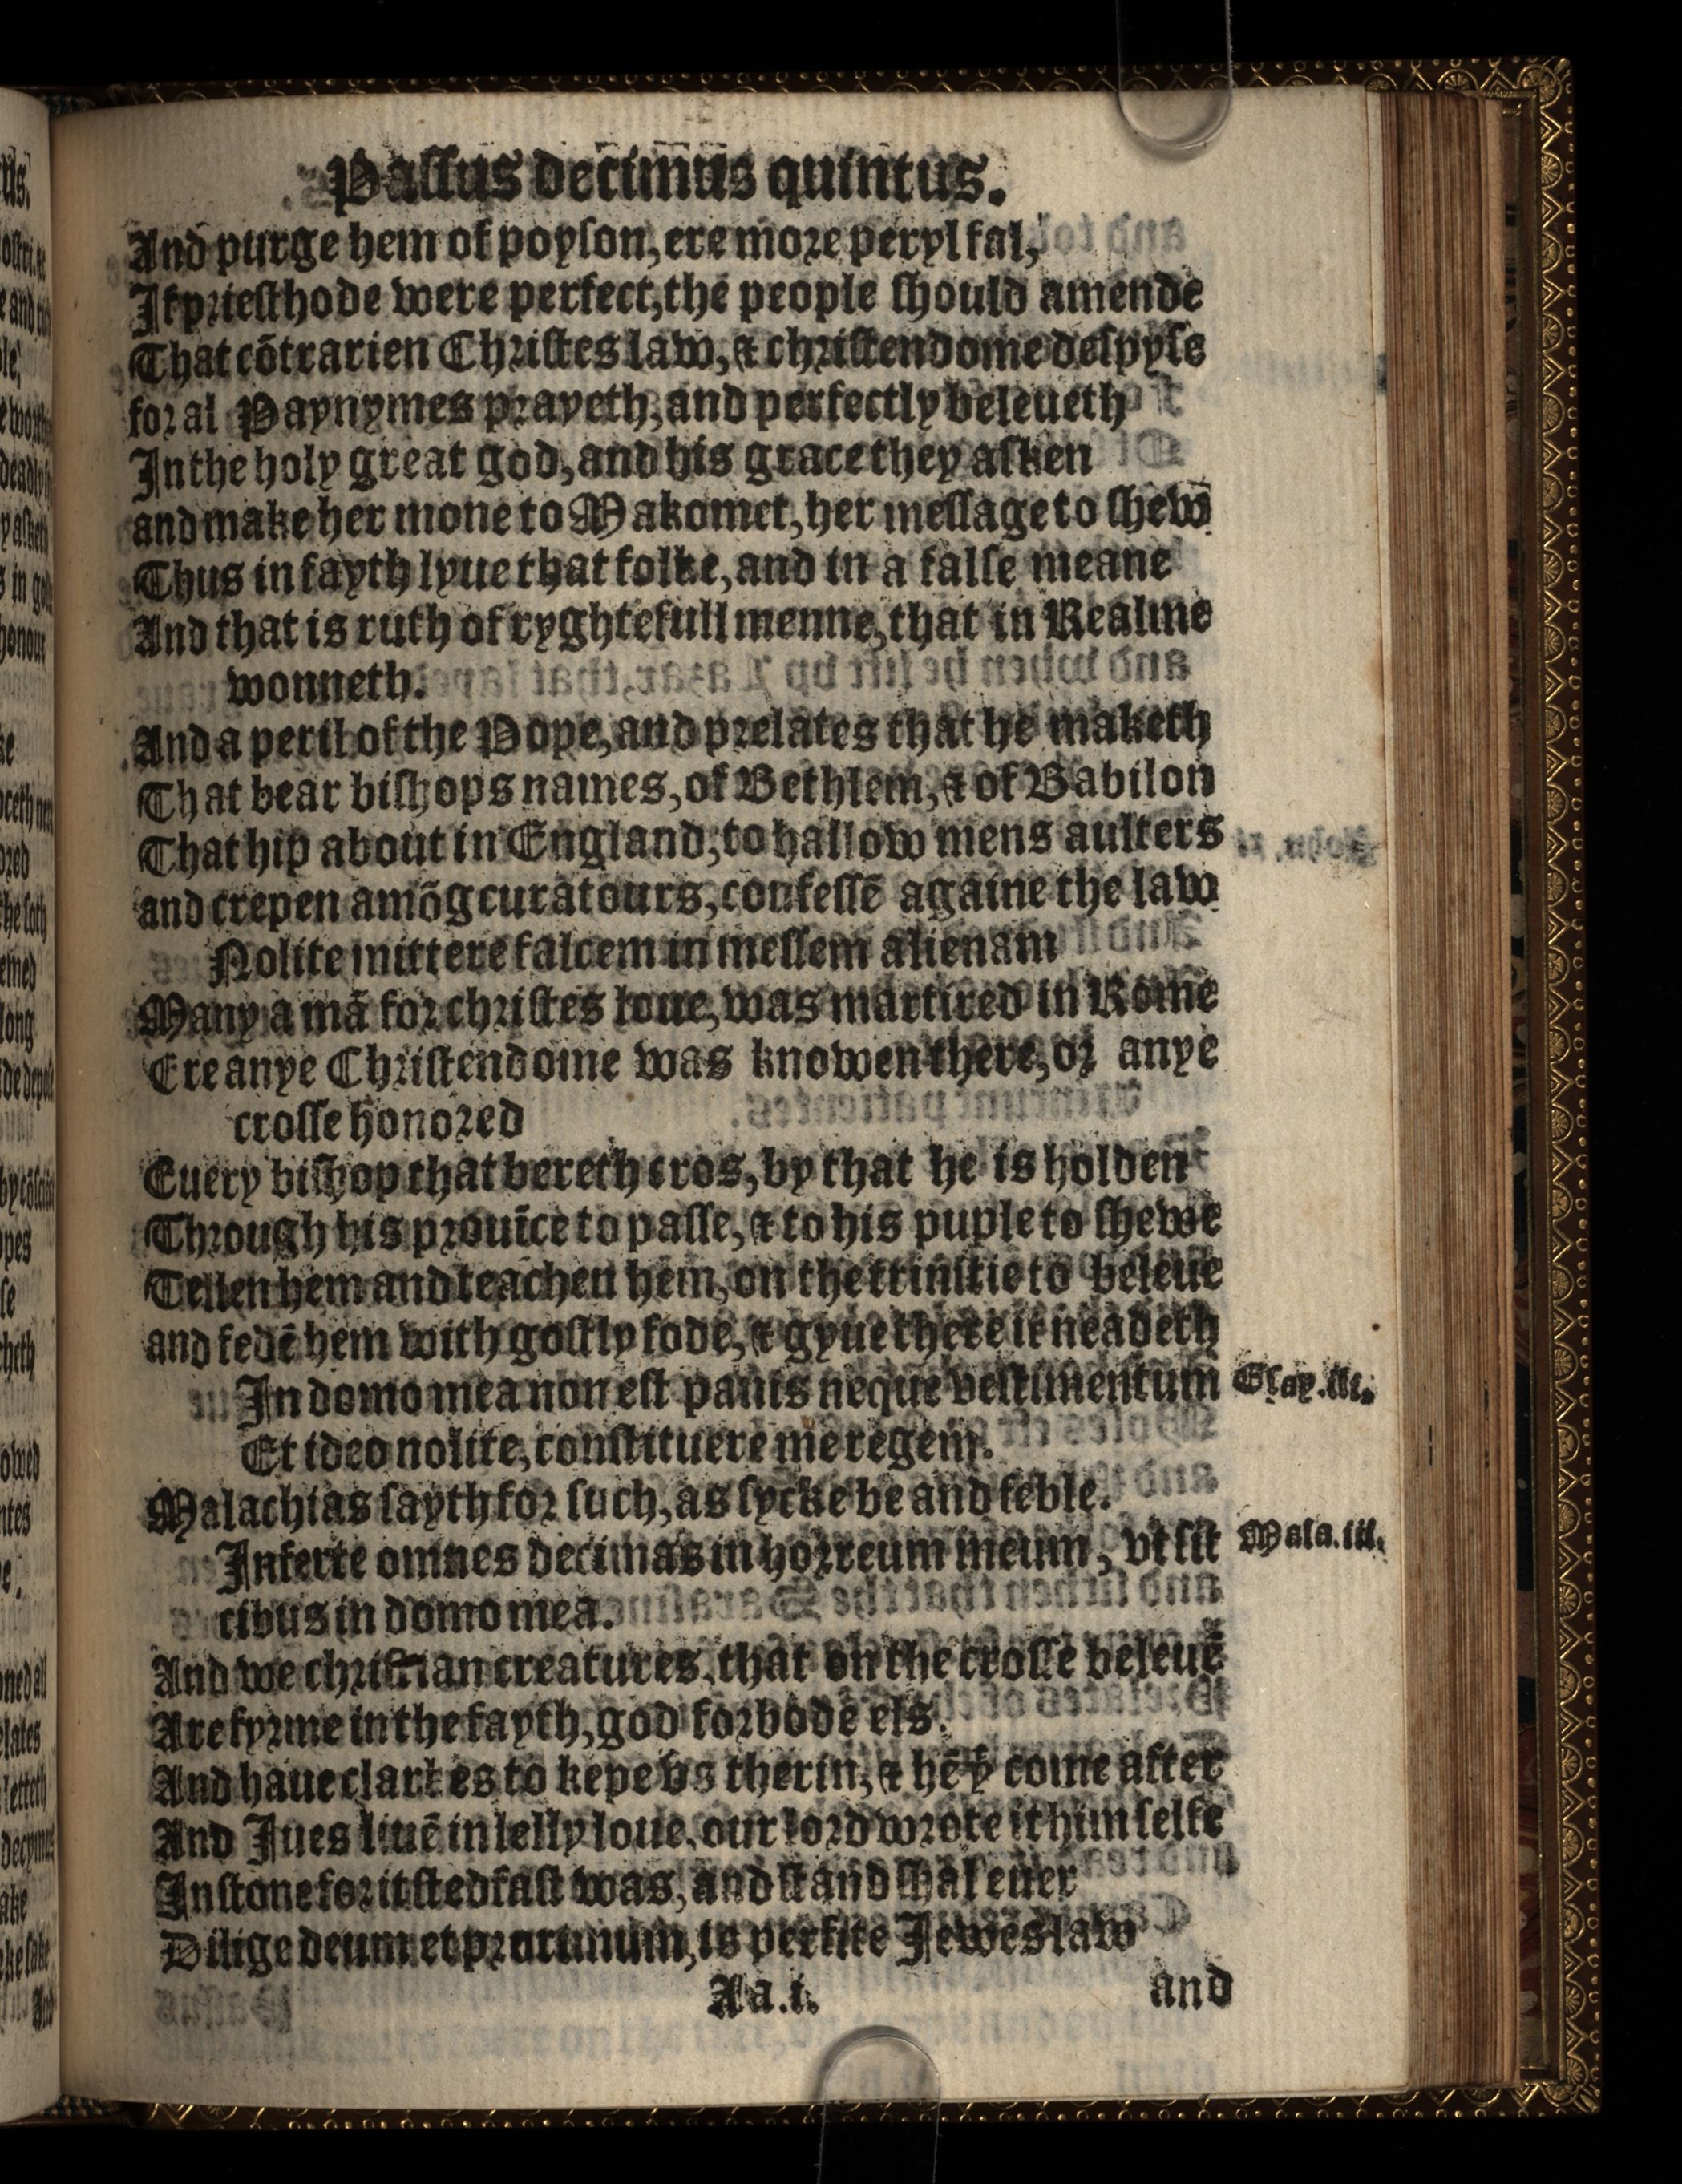 Passus decimus quintus.
And purge hem of poyson, ere more peryl fal,
If priesthode were perfect, the people should amende
That cōtrarien Christes law, & christendome despyse
for al Paynymes prayeth, and perfectly beleueth
In the holy great god, and his grace they asken
and make her mone to Makomet, her message to shew
Thus in fayth lyue that folke, and in a false meane
And that is ruth of ryghtefull menne, that in Realme
wonneth.
And a peril of the Pope, and prelates that he maketh
That bear bishops names, of Bethlem, & of Babilon
That hip about in England, to hallow mens aulters
and crepen amōg curatours, confessē againe the law
Nolite mittere falcem in messem alienam
Many a mā for christes loue, was martired in Rome
Ere anye Christendome was knowen there, or anye
crosse honored
Euery bishop that bereth cros, by that he is holden
Through his prouīce to passe, & to his puple to shewe
Tellen hem and teachen hem, on the trinitie to beleue
and fedē hem with gostly fode, & gyue there it neadeth
In domo mea non est panis neque vestimentum
Esay.iii.
Et ideo nolite, constituere me regem.
Malachias sayth for such, as sycke be and feble.
Inferte omnes decimas in horreum meum, vt sit
Mala.iii.
cibus in domo mea.
And we christian creatures, that on the crosse beleuē
Are fyrme in the fayth, god forbodē els.
And haue clarkes to kepe vs therin, & hē yͭ come after
And Jues liuē in lelly loue, our lord wrote it him selfe
In stone for it stedfast was, and stand shal euer
Dilige deum et proximum, is perfite Jewes law
Aa.i.
and